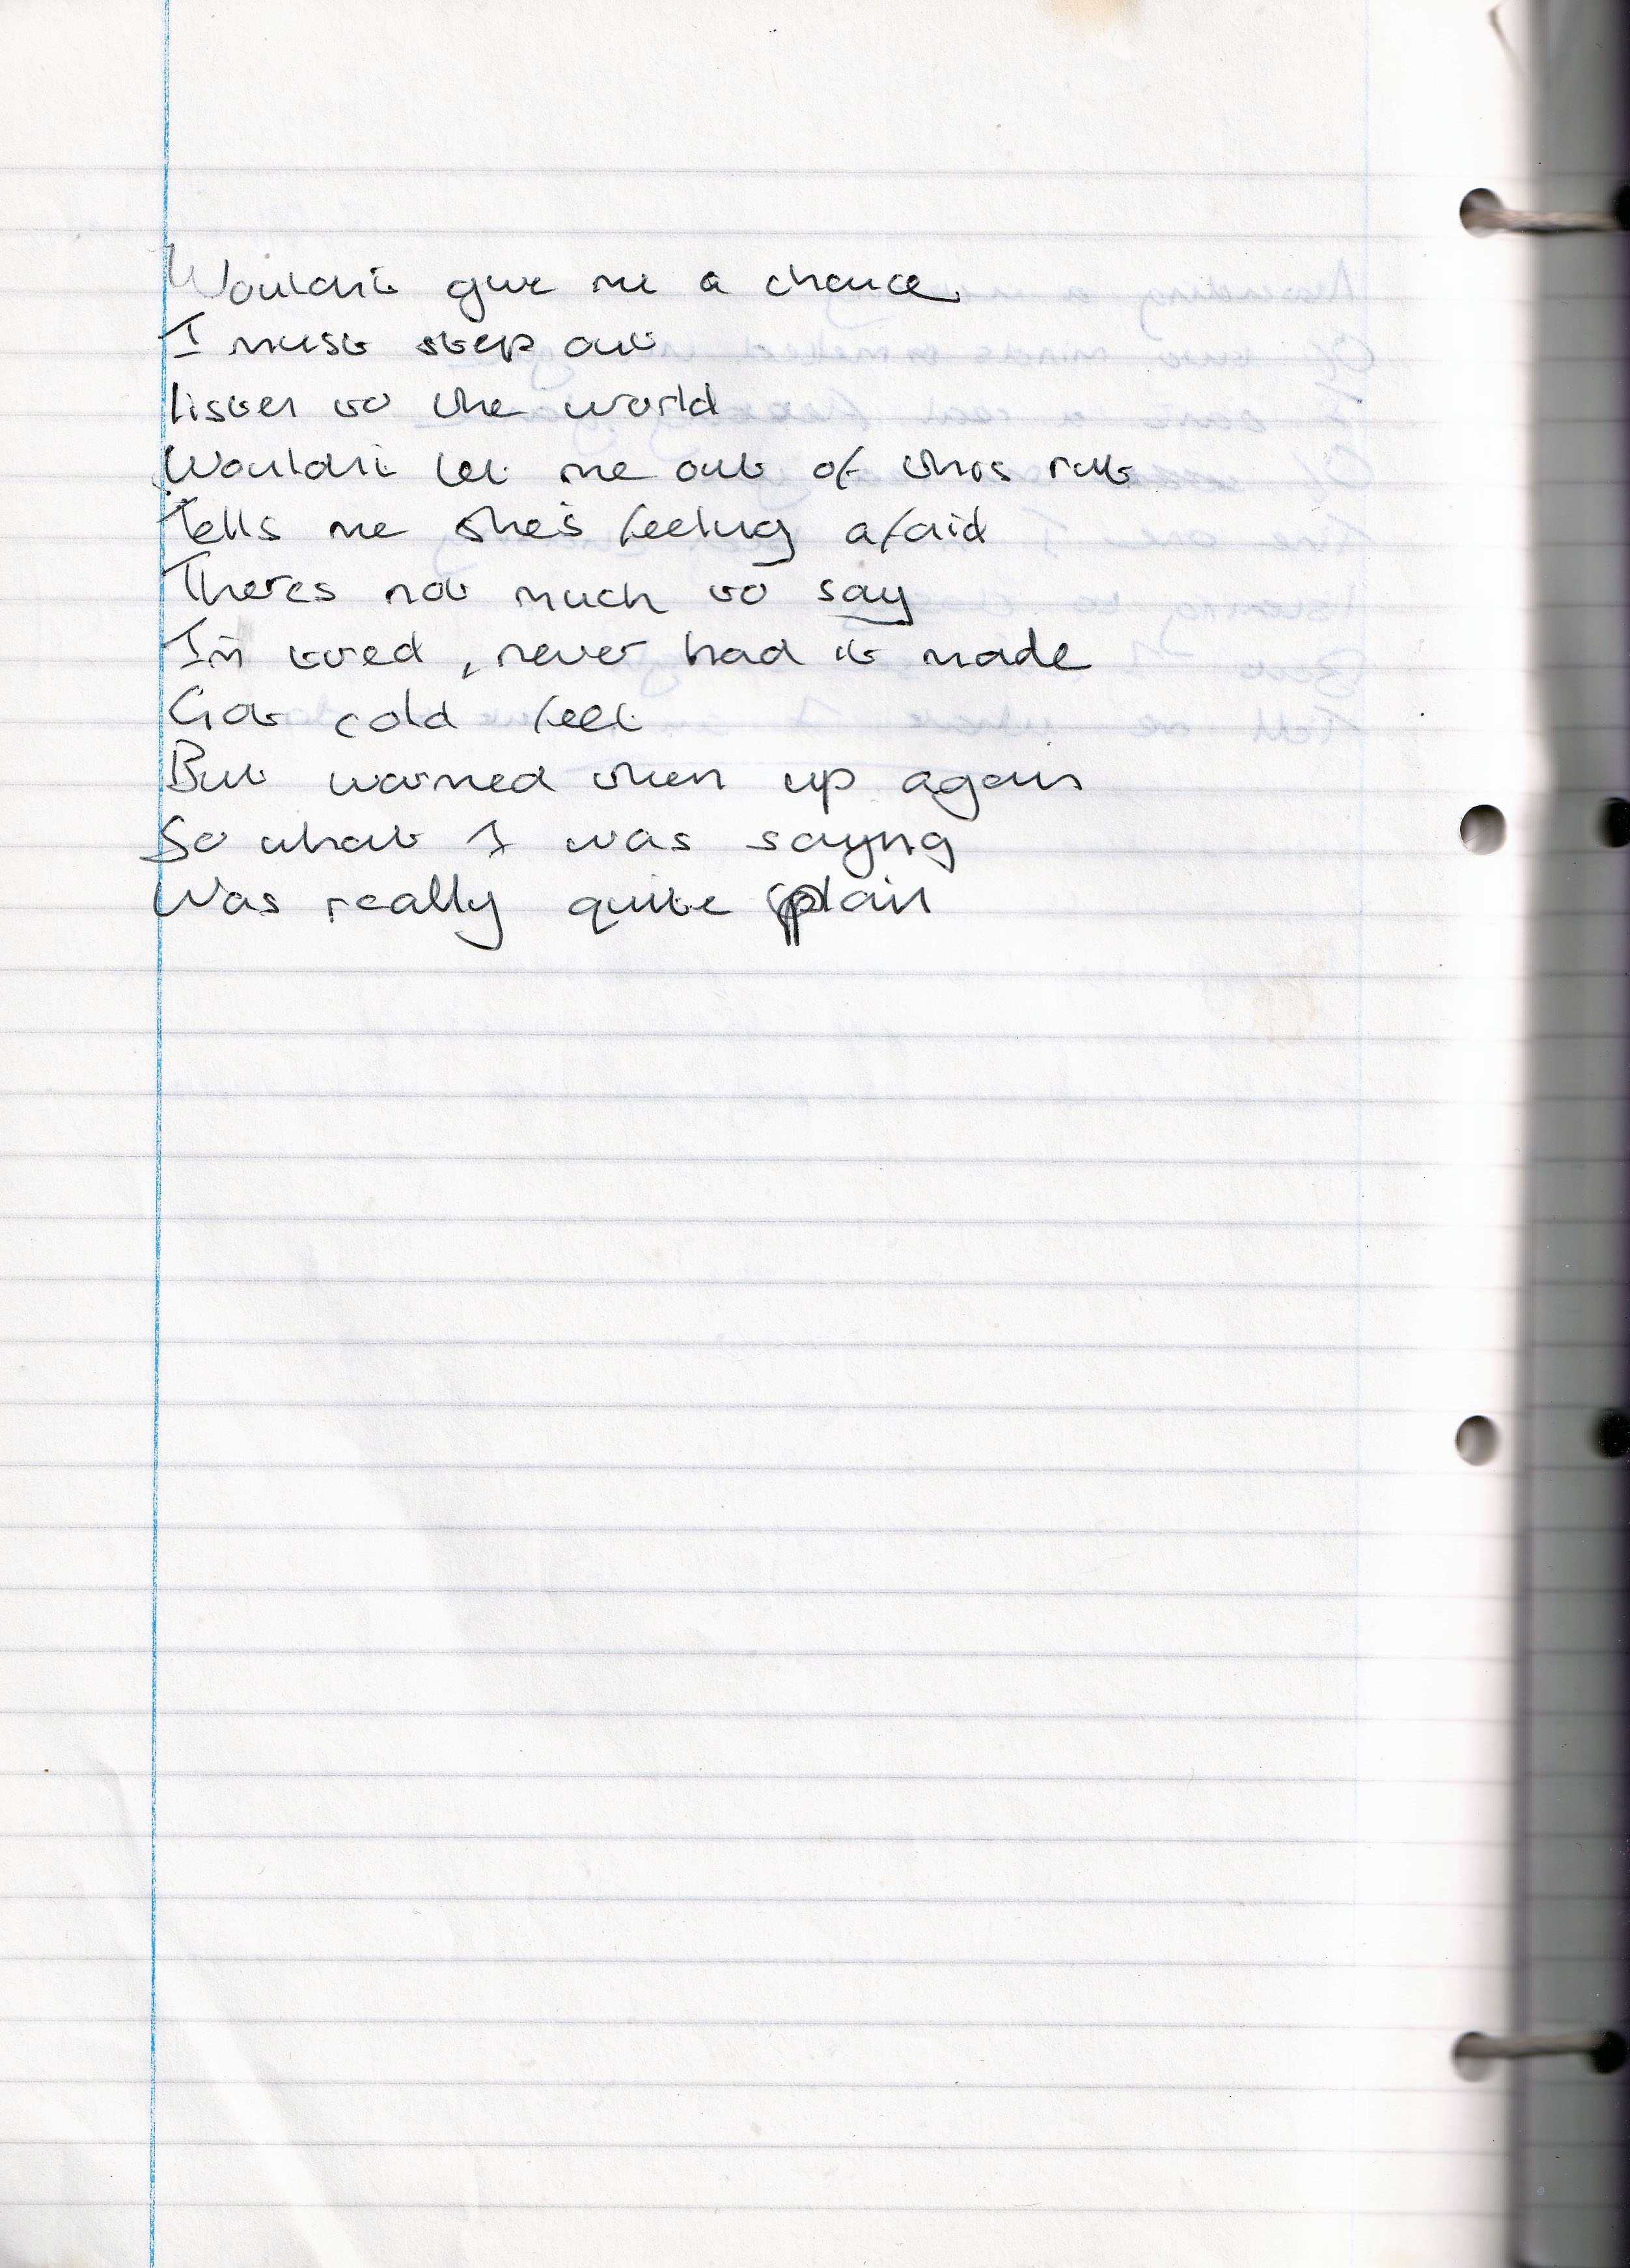 Wouldn't give me a chance
I must step out
listen to the world
Wouldn't let me out of this rut
Tells me she's feeling afraid
Theres not much to say
I'm tired, never had it made
Got cold feet
But warmed them up again
So what I was saying
Was really quite plain